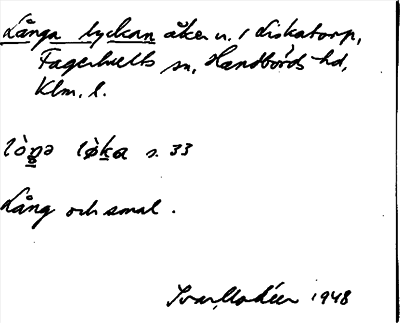 Långa lyckan åker n. 1 Diskatorp,
Fagerhults sn, Handbörds hd,
Klm. l.
lòṉə lø̀ḵa s. 33
Lång och smal.
Ivar Modéer 1948